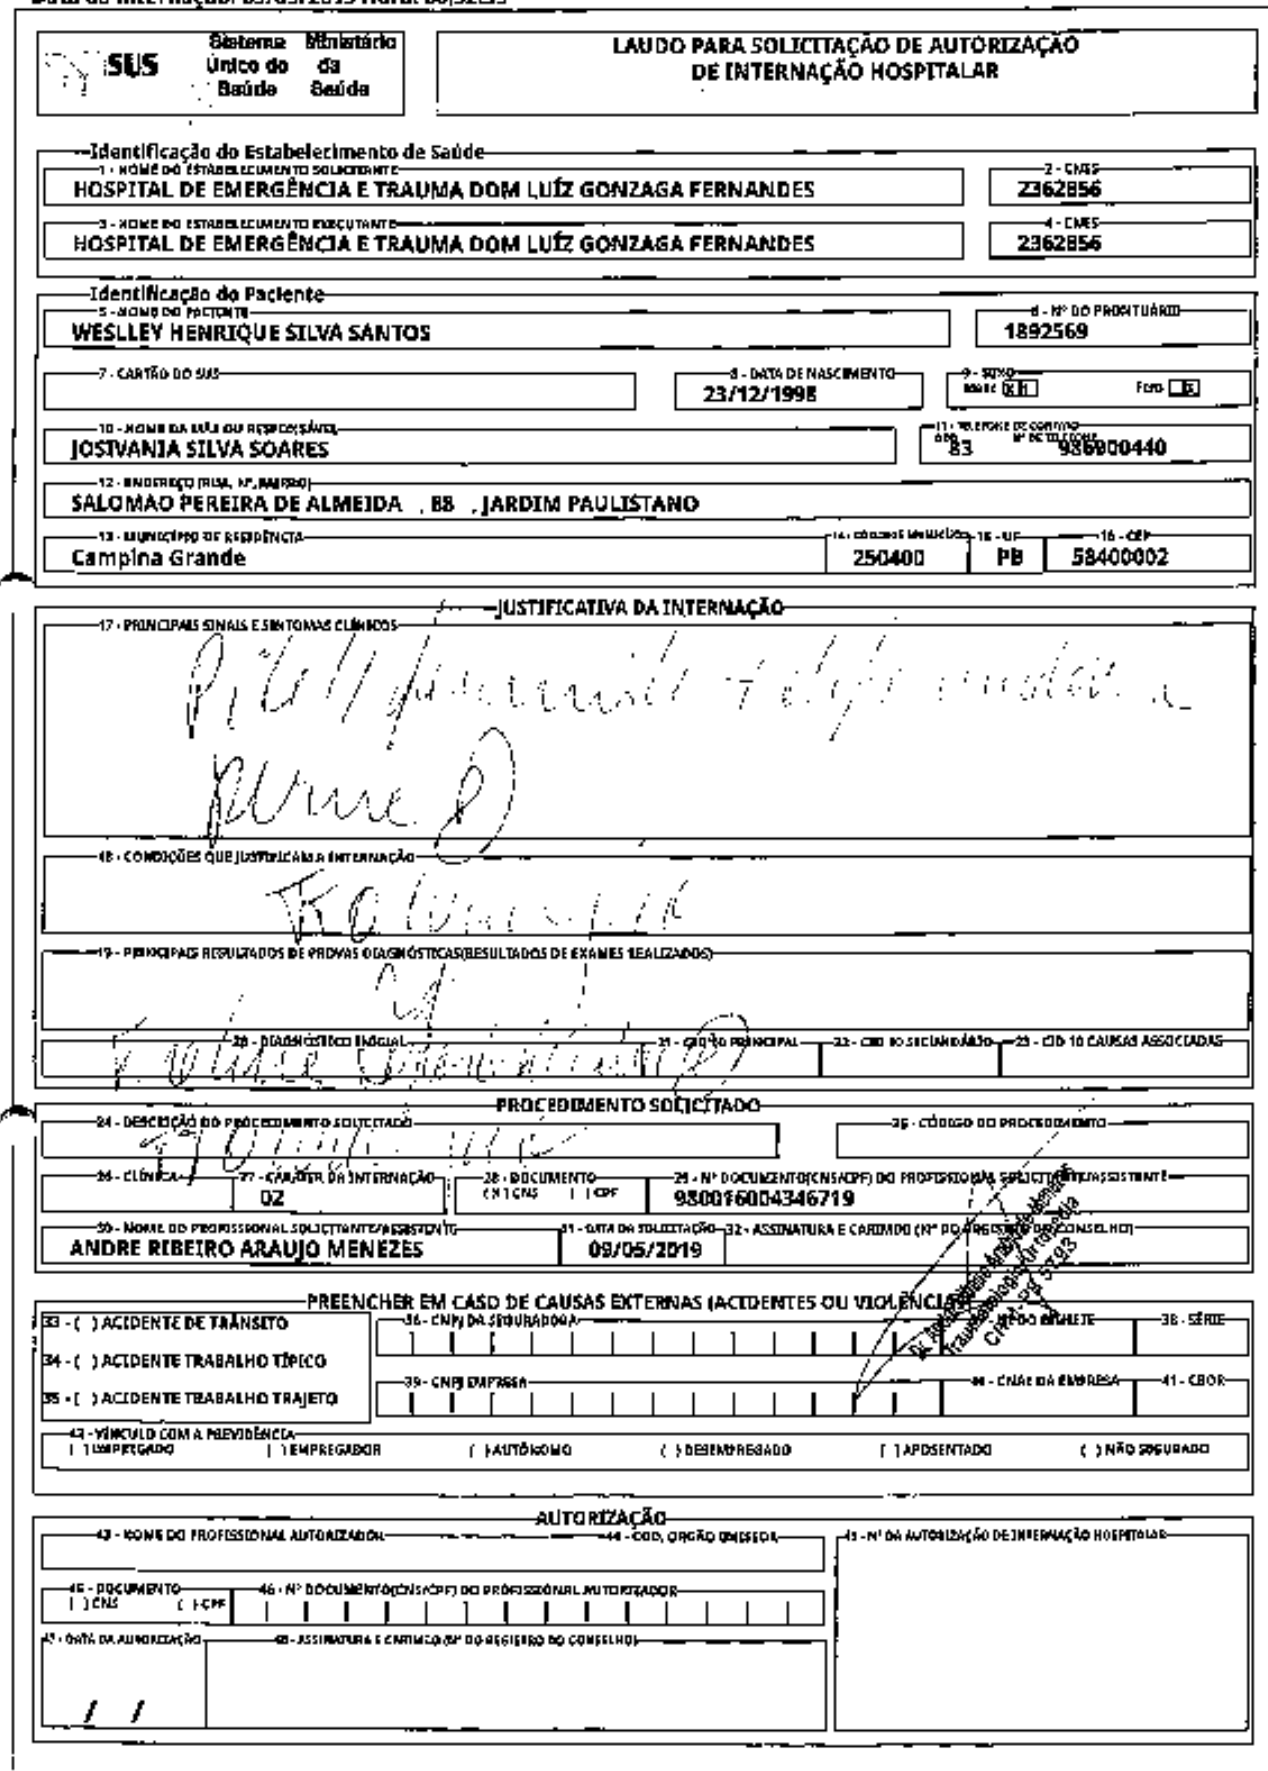 SUS
Sistema Ministério
Único do da
Saúde Saúde
LAUDO PARA SOLICITAÇÃO DE AUTORIZAÇÃO
DE INTERNAÇÃO HOSPITALAR
Identificação do Estabelecimento de Saúde
1 - NOME DO ESTABELECIMENTO SOLICITANTE
HOSPITAL DE EMERGÊNCIA E TRAUMA DOM LUÍZ GONZAGA FERNANDES
2 - CNES
2362856
3 - NOME DO ESTABELECIMENTO EXECUTANTE
HOSPITAL DE EMERGÊNCIA E TRAUMA DOM LUÍZ GONZAGA FERNANDES
4 - CNES
2362856
Identificação do Paciente
5 - NOME DO PACIENTE
WESLLEY HENRIQUE SILVA SANTOS
6 - Nº DO PRONTUÁRIO
1892569
7 - CARTÃO DO SUS
8 - DATA DE NASCIMENTO
23/12/1998
9 - SEXO
10 - NOME DA MÃE OU RESPONSÁVEL
JOSIVANIA SILVA SOARES
11 - TELEFONE DE CONTATO
DDD Nº DE TELEFONE
83 986900440
12 - ENDEREÇO (RUA, Nº, BAIRRO)
SALOMAO PEREIRA DE ALMEIDA , 88 , JARDIM PAULISTANO
13 - MUNICÍPIO DE RESIDÊNCIA
Campina Grande
250400
15 - UF
PB
16 - CEP
58400002
JUSTIFICATIVA DA INTERNAÇÃO
17 - PRINCIPAIS SINAIS E SINTOMAS CLÍNICOS
18 - CONDIÇÕES QUE JUSTIFICAM A INTERNAÇÃO
19 - PRINCIPAIS RESULTADOS DE PROVAS DIAGNÓSTICAS(RESULTADOS DE EXAMES REALIZADOS)
20 - DIAGNÓSTICO INICIAL
21 - CID 10 PRINCIPAL
22 - CID 10 SECUNDÁRIO
23 - CID 10 CAUSAS ASSOCIADAS
PROCEDIMENTO SOLICITADO
24 - DESCRIÇÃO DO PROCEDIMENTO SOLICITADO
25 - CÓDIGO DO PROCEDIMENTO
26 - CLÍNICA
27 - CARÁTER DA INTERNAÇÃO
02
28 - DOCUMENTO
( X ) CNS ( ) CPF
29 - Nº DOCUMENTO(CNS/CPF) DO PROFISSIONAL SOLICITANTE/ASSISTENTE
980016004346719
30 - NOME DO PROFISSIONAL SOLICITANTE/ASSISTENTE
ANDRE RIBEIRO ARAUJO MENEZES
31 - DATA DA SOLICITAÇÃO
09/05/2019
32 - ASSINATURA E CARIMBO (Nº DO REGISTRO DO CONSELHO)
PREENCHER EM CASO DE CAUSAS EXTERNAS (ACIDENTES OU VIOLÊNCIA)
33 - ( ) ACIDENTE DE TRÂNSITO
34 - ( ) ACIDENTE TRABALHO TÍPICO
35 - ( ) ACIDENTE TRABALHO TRAJETO
36 - CNPJ DA SEGURADORA
38 - SÉRIE
39 - CNPJ EMPRESA
40 - CNAE DA EMPRESA
41 - CBOR
42 - VÍNCULO COM A PREVIDÊNCIA
( ) EMPREGADO ( ) EMPREGADOR ( ) AUTÔNOMO ( ) DESEMPREGADO ( ) APOSENTADO ( ) NÃO SEGURADO
AUTORIZAÇÃO
43 - NOME DO PROFISSIONAL AUTORIZADOR
44 - COD. ORGÃO EMISSOR
45 - Nº DA AUTORIZAÇÃO DE INTERNAÇÃO HOSPITALAR
45 - DOCUMENTO
( ) CNS ( ) CPF
46 - Nº DOCUMENTO(CNS/CPF) DO PROFISSIONAL AUTORIZADOR
47 - DATA DA AUTORIZAÇÃO
/ /
48 - ASSINATURA E CARIMBO (Nº DO REGISTRO DO CONSELHO)